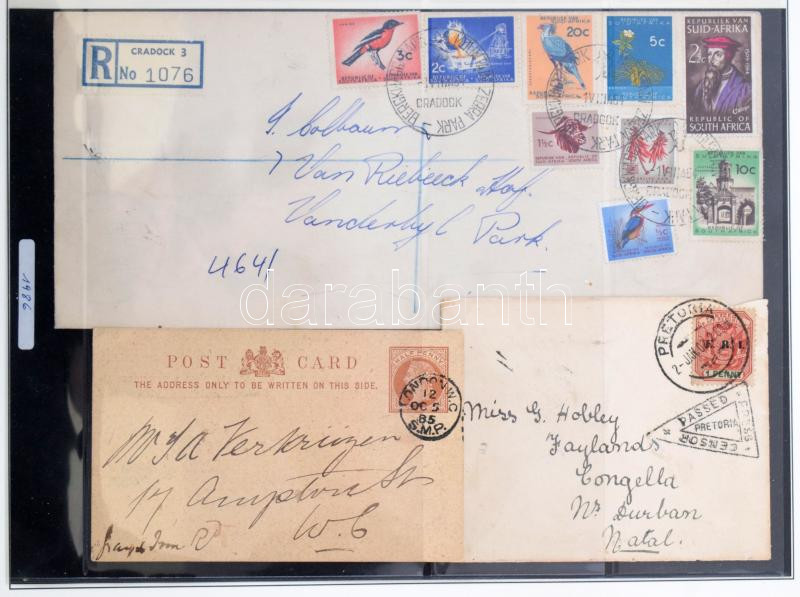 CRADOCK 3
R No 1076
3c
2c
20c
5c
2½c
REPUBLIEK VAN
SUID-AFRIKA
1509-1964
REPUBLIC OF
SOUTH AFRICA
1½c
1c
½c
10c
BERGKWAGGAPARK
ZEBRA PARK
CRADOCK
7 Van Riebeeck Hof,
Vanderbyl Park.
4641
darabanth
1986
POST CARD
THE ADDRESS ONLY TO BE WRITTEN ON THIS SIDE.
HALF PENNY
LONDON W.C
12
OC 5
85
S.M.P.
17 Ampton St
W.C
PRETORIA
2-JAN
V. R. I.
1 PENNY
PASSED
PRESS
CENSOR
PRETORIA
Miss G. Hobley
Faylands
Congella
Nr Durban
Natal.